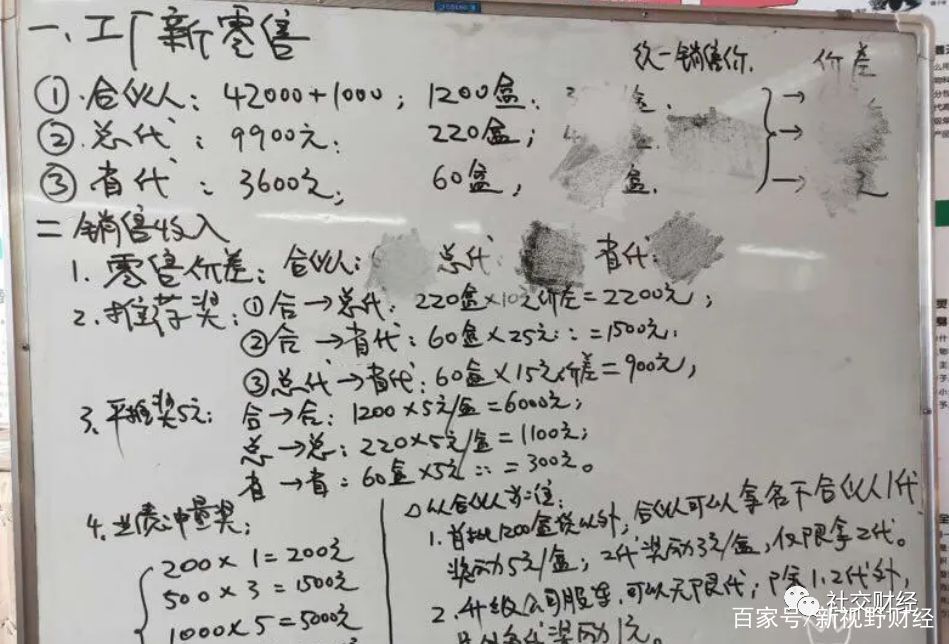 一、工厂新零售
统一销售价 价差
① 合伙人：42000+1000；1200盒、 盒、 →
② 总代：9900元、 220盒； →
③ 省代：3600元； 60盒， 盒、 → 元
二 销售收入
1、零售价差：合伙人： 总代： 省代：
2、推荐奖：①合→总代：220盒×10元价差=2200元；
②合→省代：60盒×25元∷=1500元；
③总代→省代：60盒×15元价差=900元，
3、平推奖5元：合→合：1200×5元/盒=6000元；
总→总：220×5元/盒=1100元；
省→省：60盒×5元∷=300元。
4、业绩冲量奖：
200×1=200元
500×3=1500元
1000×5=5000元
以合伙人为准：
1、首批1200盒货以外，合伙人可以拿名下合伙人1代
奖励5元/盒；2代奖励3元/盒，仅限拿2代。
2、升级公司股东，可以无限代；除1、2代外，
代奖励1元。
社交财经
百家号/新视野财经